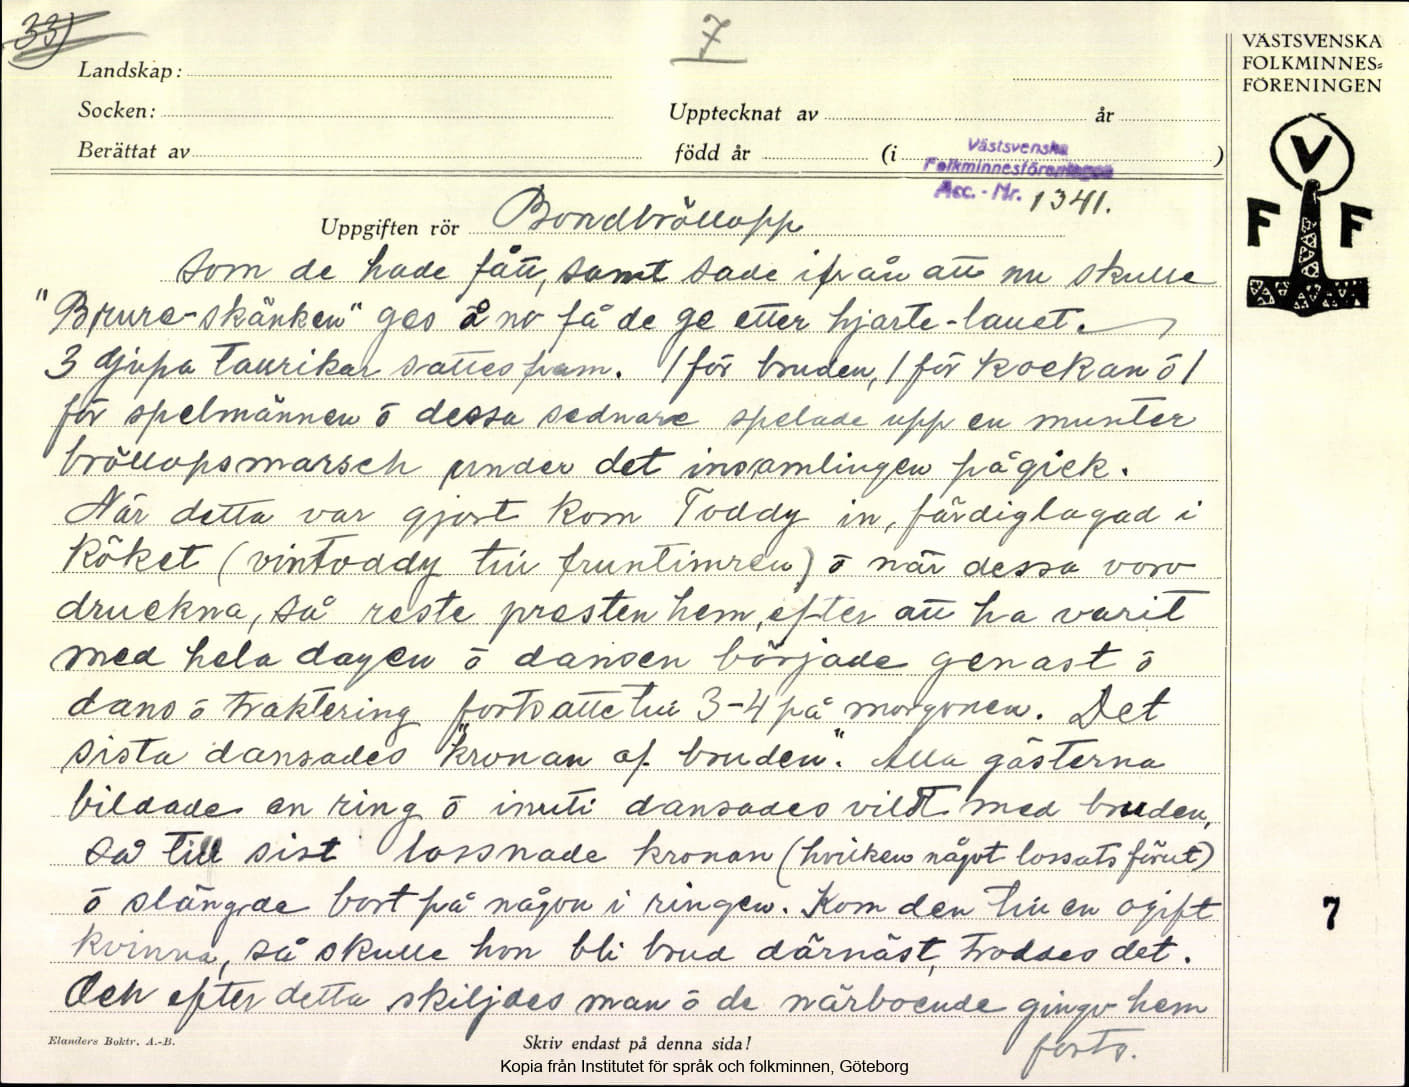 33)
7
Landskap:
Socken:
Upptecknat av år
Berättat av född år (i )
Västsvenska
Folkminnesföreningen
Acc. - Nr. 1341.
Uppgiften rör Bondbröllopp
som de hade fått, samt sade ifrån att nu skulle
"Brure-skänken" ges å no få de ge etter hjarte-lauet.
3 djupa taurikar sattes fram. 1 för bruden, 1 för kockan ö 1
för spelmännen ö dessa sednare spelade upp en munter
bröllopsmarsch under det insamlingen pågick.
När detta var gjort kom Toddy in, färdiglagad i
köket (vintoddy till fruntimren) ö när dessa voro
druckna, så reste presten hem, efter att ha varit
med hela dagen ö dansen började genast ö
dans ö traktering fortsatte till 3-4 på morgonen. Det
sista dansades "kronan af bruden". Alla gästerna
bildade en ring ö inuti dansades vildt med bruden,
så till sist lossnade kronan (hvilken något lossats förut)
ö slängde bort på någon i ringen. Kom den till en ogift
kvinna, så skulle hon bli brud därnäst, troddes det.
Och efter detta skiljdes man ö de närboende gingo hem
forts.
Elanders Boktr. A.-B.
Skriv endast på denna sida!
Kopia från Institutet för språk och folkminnen, Göteborg
VÄSTSVENSKA
FOLKMINNES=
FÖRENINGEN
V
F F
7